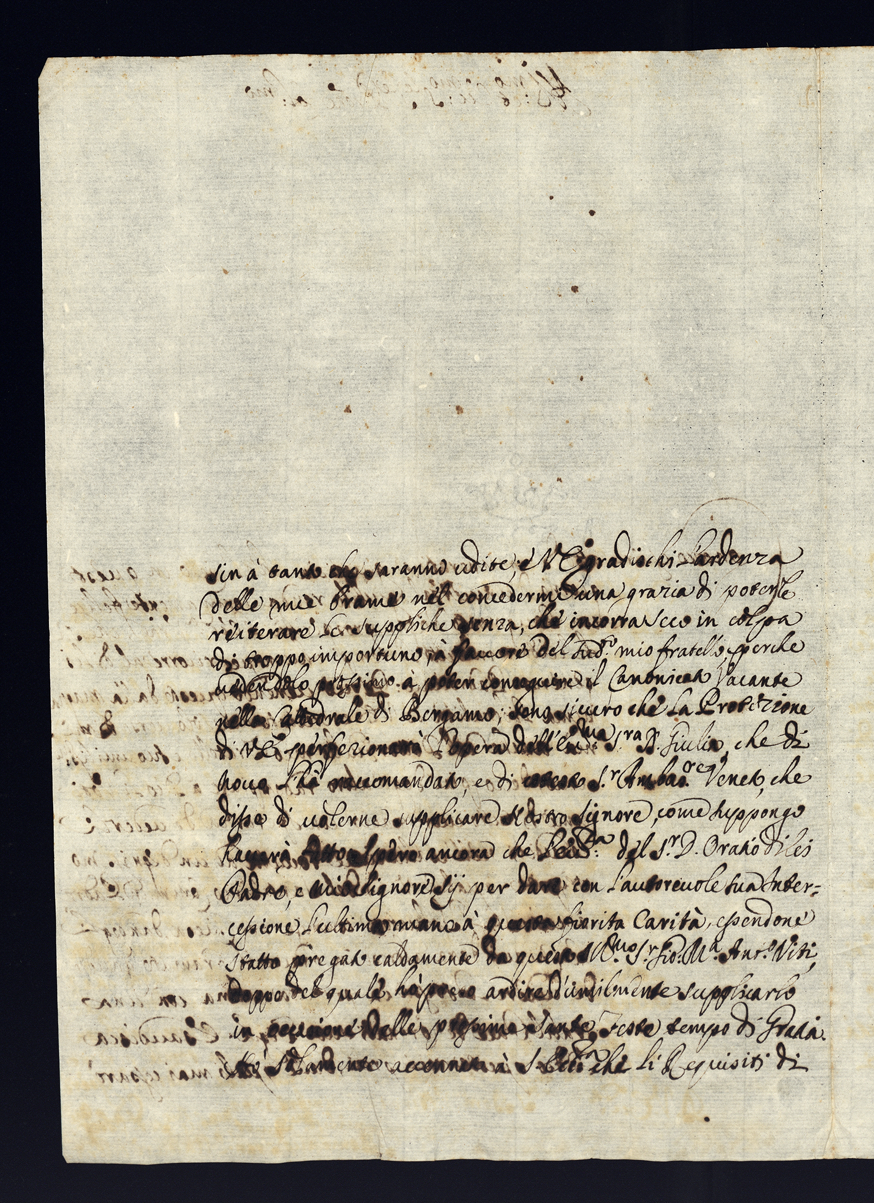 sin à tanto che saranno udite, e V E gradischi l'ardenza
delle mie brame nel concedermi una grazia di poterle
reiterare le suppliche senza, che incorra seco in colpa
di troppo importuno, à favore del sud.º mio fratello, perche
à poter conseguire il Canonicato Vacante
nella Cattedrale di Bergamo; sono sicuro che La Protezione
di V E perfezionarà l'opera dell' S.ra D. Giulia, che di
novo l'hà raccomandato, e di cotesto S.r Ambas.re Veneto, che
disse di volerne supplicare Nostro Signore, come suppongo
havarà fatto. Spero ancora che del S.r D. Oratio di lei
Padre, e mio Signore sij per dare con l'autorevole sua Inter=
cessione l'ultima mano à questa fiorita Carità, essendone
statto pregato caldamente da questo S.r Gio. M.a Ant.o Viti,
doppo del quale hà preso ardire d'umilmente supplicarlo
in occasione delle prossime Sante Feste tempo di Gratia.
accennato à S. che li Requisiti di